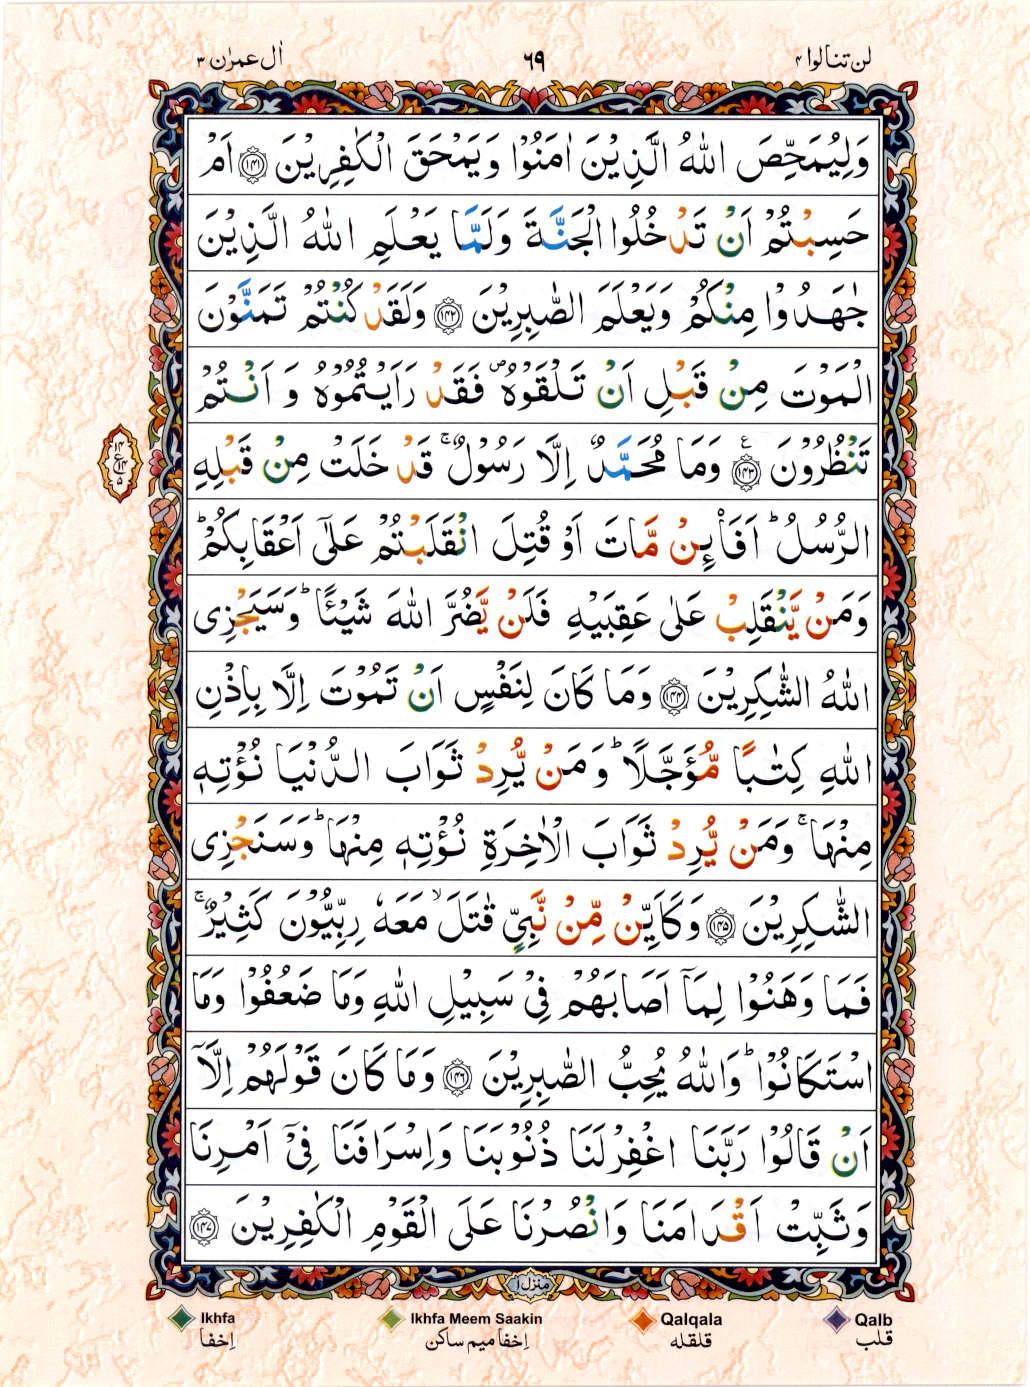 لن تنالوا ۴ ٦٩ اٰل عمرٰن ۳
وَلِيُمَحِّصَ اللّٰهُ الَّذِيْنَ اٰمَنُوْا وَيَمْحَقَ الْكٰفِرِيْنَ ﴿۱۴۱﴾ اَمْ
حَسِبْتُمْ اَنْ تَدْخُلُوا الْجَنَّةَ وَلَمَّا يَعْلَمِ اللّٰهُ الَّذِيْنَ
جٰهَدُوْا مِنْكُمْ وَيَعْلَمَ الصّٰبِرِيْنَ ﴿۱۴۲﴾ وَلَقَدْ كُنْتُمْ تَمَنَّوْنَ
الْمَوْتَ مِنْ قَبْلِ اَنْ تَلْقَوْهُ ۪ فَقَدْ رَاَيْتُمُوْهُ وَ اَنْتُمْ
تَنْظُرُوْنَ ﴿۱۴۳﴾ ع وَمَا مُحَمَّدٌ اِلَّا رَسُوْلٌ ۚ قَدْ خَلَتْ مِنْ قَبْلِهِ
۱۴ ع ۱۴ ۵
الرُّسُلُ ؕ اَفَا۟ئِنْ مَّاتَ اَوْ قُتِلَ انْقَلَبْتُمْ عَلٰٓى اَعْقَابِكُمْ ؕ
وَمَنْ يَّنْقَلِبْ عَلٰى عَقِبَيْهِ فَلَنْ يَّضُرَّ اللّٰهَ شَيْـًٔا ؕ وَسَيَجْزِى
اللّٰهُ الشّٰكِرِيْنَ ﴿۱۴۴﴾ وَمَا كَانَ لِنَفْسٍ اَنْ تَمُوْتَ اِلَّا بِاِذْنِ
اللّٰهِ كِتٰبًا مُّؤَجَّلًا ؕ وَمَنْ يُّرِدْ ثَوَابَ الدُّنْيَا نُؤْتِهٖ
مِنْهَا ۚ وَمَنْ يُّرِدْ ثَوَابَ الْاٰخِرَةِ نُؤْتِهٖ مِنْهَا ؕ وَسَنَجْزِى
الشّٰكِرِيْنَ ﴿۱۴۵﴾ وَكَاَيِّنْ مِّنْ نَّبِيٍّ قٰتَلَ ۙ مَعَهٗ رِبِّيُّوْنَ كَثِيْرٌ ۚ
فَمَا وَهَنُوْا لِمَاۤ اَصَابَهُمْ فِيْ سَبِيْلِ اللّٰهِ وَمَا ضَعُفُوْا وَمَا
اسْتَكَانُوْا ؕ وَاللّٰهُ يُحِبُّ الصّٰبِرِيْنَ ﴿۱۴۶﴾ وَمَا كَانَ قَوْلَهُمْ اِلَّاۤ
اَنْ قَالُوْا رَبَّنَا اغْفِرْ لَنَا ذُنُوْبَنَا وَاِسْرَافَنَا فِيْۤ اَمْرِنَا
وَثَبِّتْ اَقْدَامَنَا وَانْصُرْنَا عَلَى الْقَوْمِ الْكٰفِرِيْنَ ﴿۱۴۷﴾
منزل ۱
Ikhfa Ikhfa Meem Saakin Qalqala Qalb
اِخفا اِخفا میم ساکن قلقله قلب